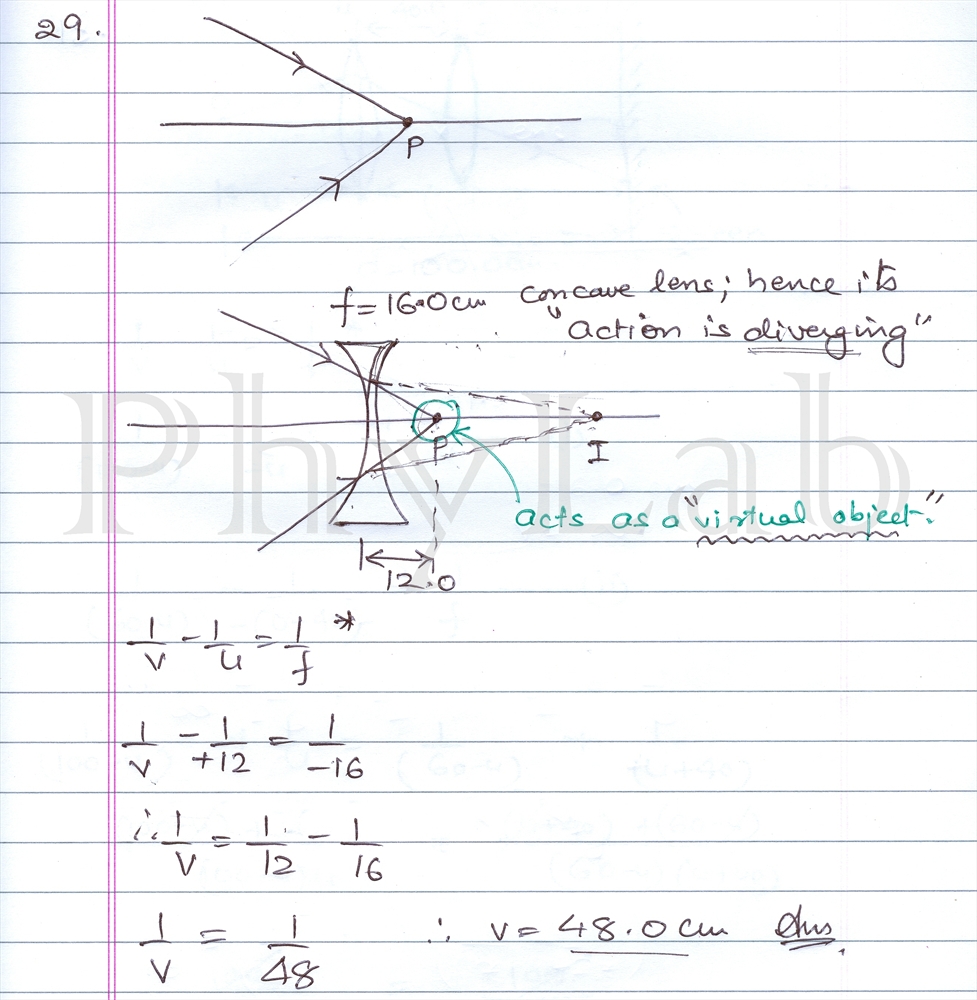 29.
P
f = 16.0 cm concave lens; hence its
"action is diverging"
P
I
acts as a "virtual object."
12.0
1/v - 1/u = 1/f *
1/v - 1/+12 = 1/-16
∴ 1/v = 1/12 - 1/16
1/v = 1/48 ∴ v = 48.0 cm Ans.
PhyLab